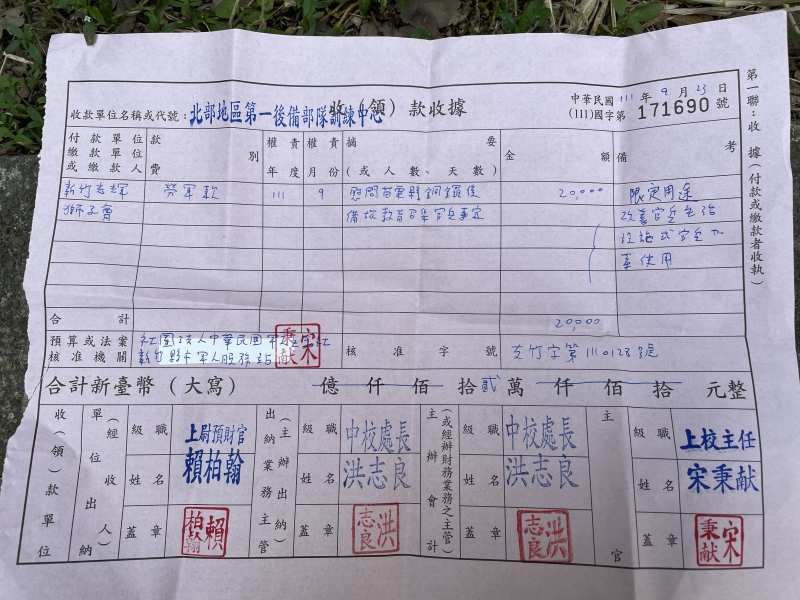 收(領)款收據
中華民國 111 年 9 月 23 日
(111)國字第 171690 號
收款單位名稱或代號：北部地區第一後備部隊訓練中心
第一聯：收據(付款或繳款者收執)
付款單位 繳款單位 或繳款人
款 費 別
權責年度
權責月份
摘要(或人數、天數)
金額
備考
新竹 獅子會
勞軍款
111
9
慰問苗栗縣銅鑼後
備旅教育召集官兵事宜
20,000
限定用途
改善官兵生活
設施或官兵加
菜使用
合計
20,000
預算或法案核准機關
社團法人中華民國
新竹縣軍人服務站
宋秉献
核准字號
支竹字第1110128號
合計新臺幣(大寫) 億 仟 佰 拾 貳 萬 仟 佰 拾 元整
收(領)款單位
單位出納(經收人)
級職 上尉預財官
姓名 賴柏翰
蓋章 賴柏翰
出納業務主管(主辦出納)
級職 中校處長
姓名 洪志良
蓋章 洪志良
主辦會計(或經辦財務業務之主管)
級職 中校處長
姓名 洪志良
蓋章 洪志良
主官
級職 上校主任
姓名 宋秉献
蓋章 宋秉献